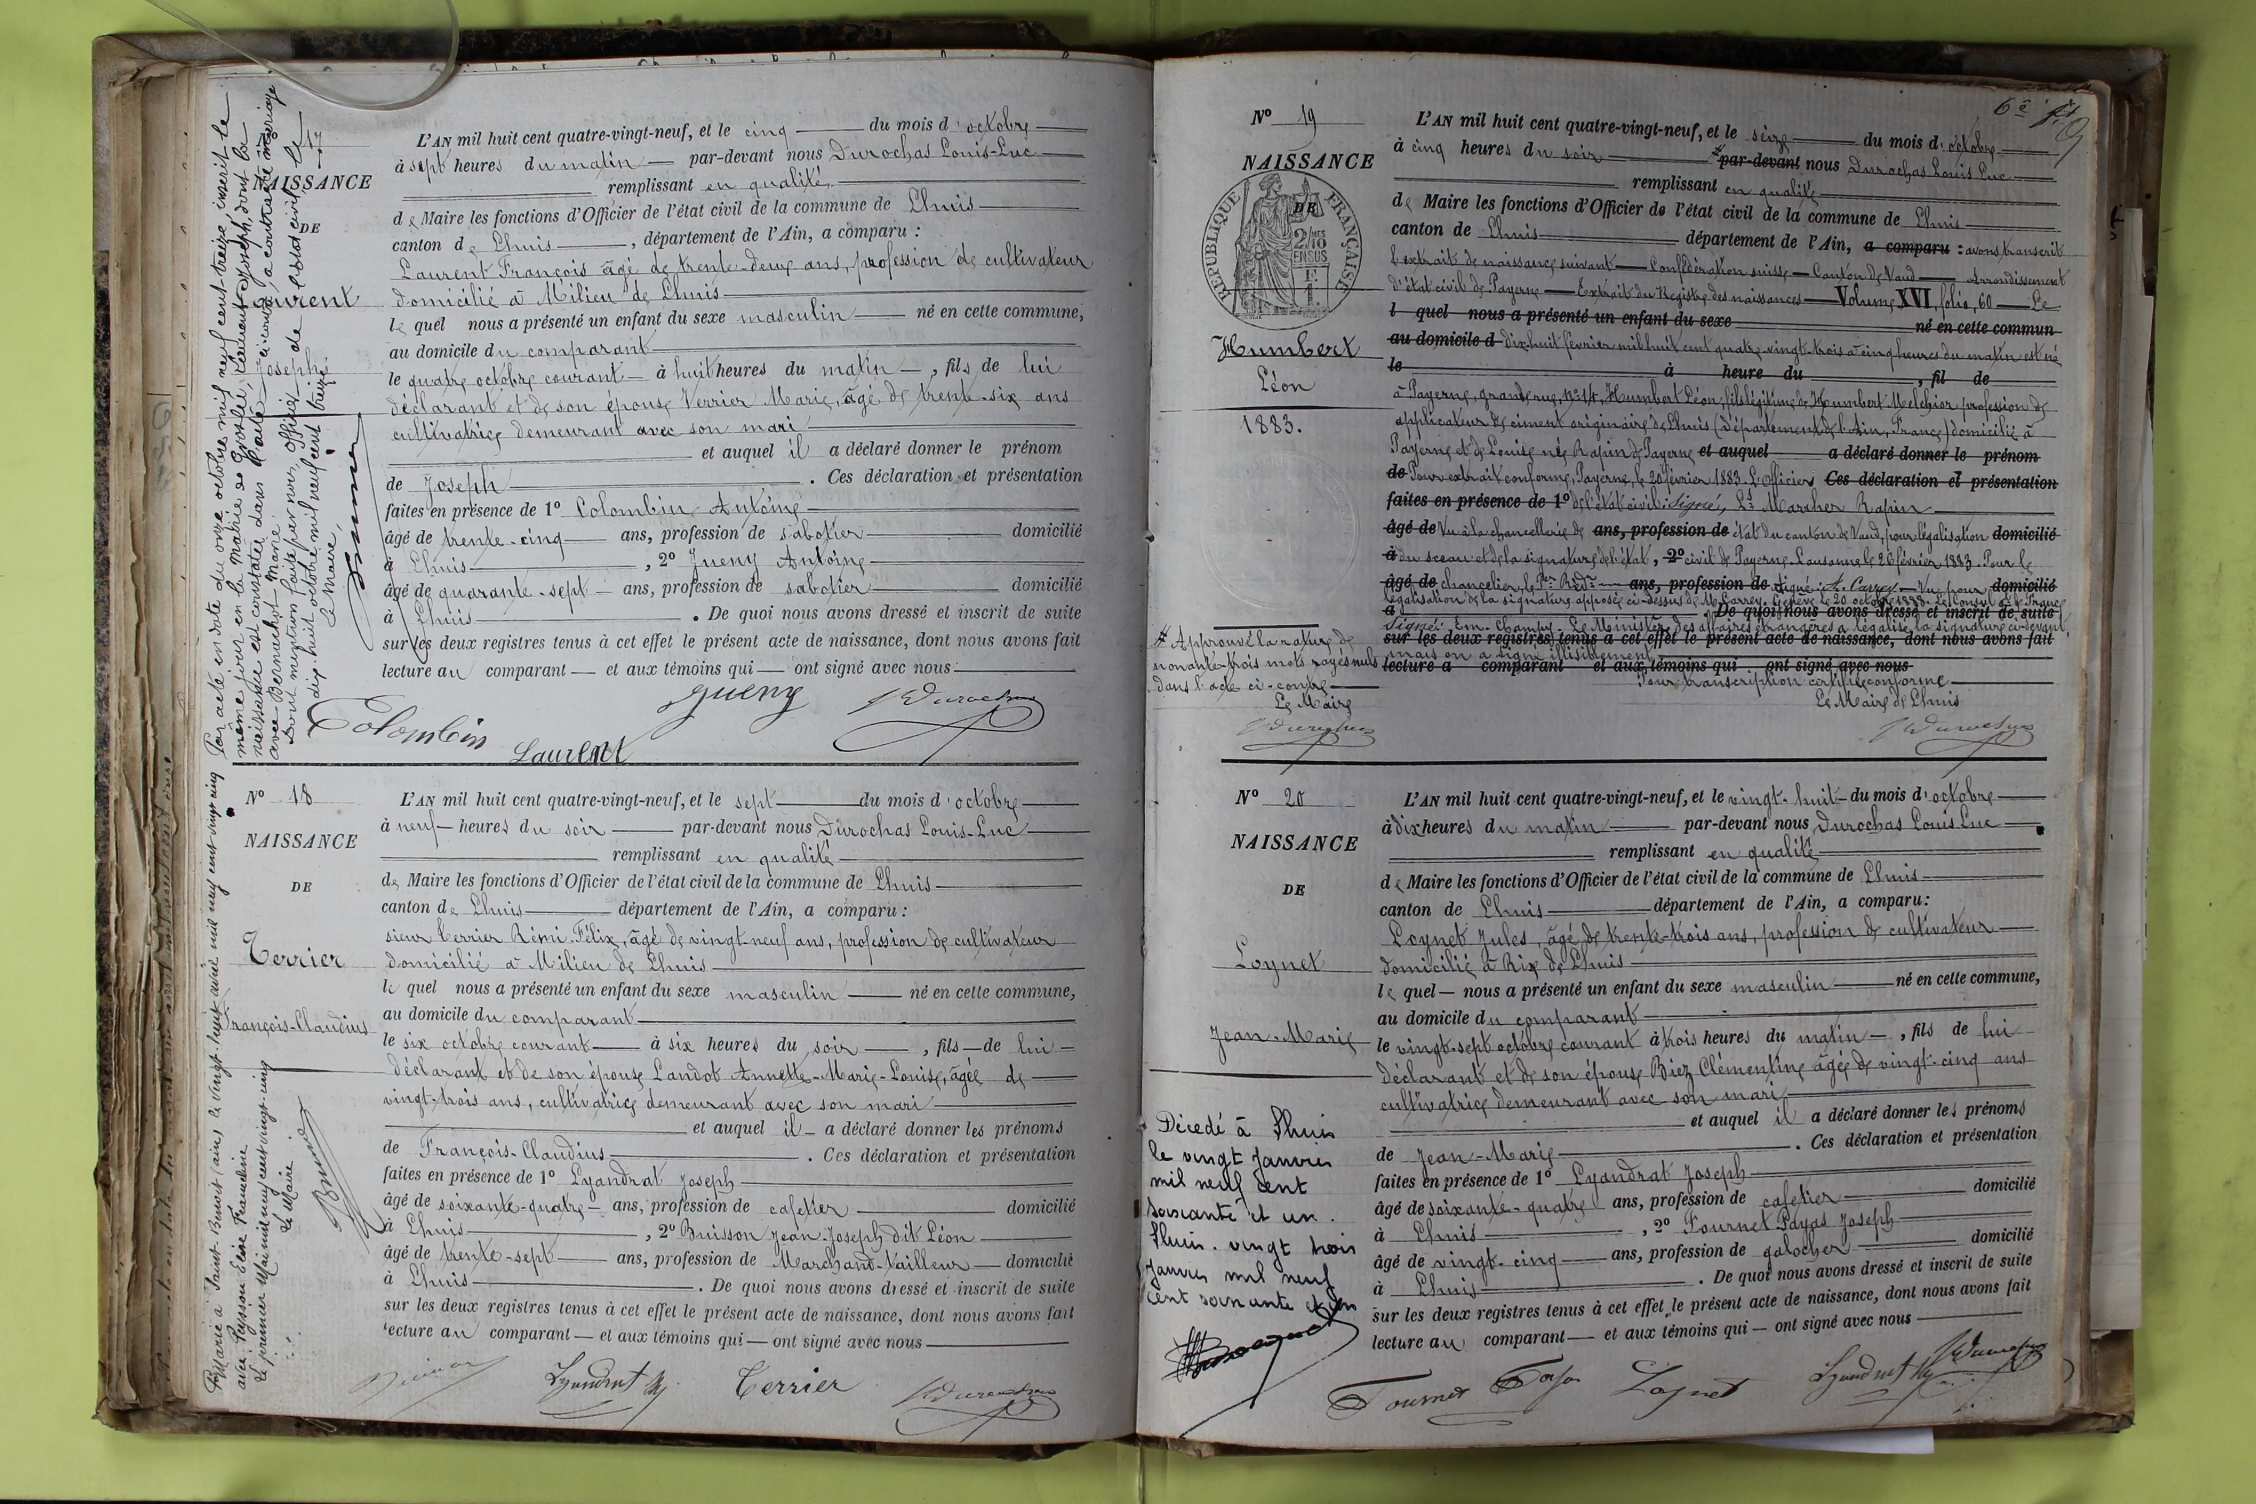 17
NAISSANCE
DE
Laurent
Joseph
L'AN mil huit cent quatre-vingt-neuf, et le cinq du mois d'octobre
à sept heures du matin par-devant nous Durochas Louis-Luc
remplissant en qualité
de Maire les fonctions d'Officier de l'état civil de la commune de Lhuis
canton de Lhuis, département de l'Ain, a comparu :
Laurent François âgé de trente-deux ans, profession de cultivateur
domicilié à Milieu de Lhuis
le quel nous a présenté un enfant du sexe masculin né en cette commune,
au domicile du comparant
le quatre octobre courant à huit heures du matin, fils de lui
déclarant et de son épouse Verrier Marie, âgé de trente-six ans
cultivatrice demeurant avec son mari
et auquel il a déclaré donner le prénom
de Joseph. Ces déclaration et présentation
faites en présence de 1º Colombin Antoine
âgé de trente-cinq ans, profession de sabotier domicilié
à Lhuis, 2º Jueny Antoine
âgé de quarante-sept ans, profession de sabotier domicilié
à Lhuis. De quoi nous avons dressé et inscrit de suite
sur les deux registres tenus à cet effet le présent acte de naissance, dont nous avons fait
lecture au comparant et aux témoins qui ont signé avec nous
Colombin Laurent Jueny Durochas
Par acte en date du onze octobre mil neuf cent treize, inscrit le
même jour en la Mairie de Groslée, Laurent Joseph, dont la
naissance est constatée dans l'acte ci-contre, a contracté mariage
avec Bernachot Marie.
Dont mention faite par nous, officier de l'état civil, le
dix-huit octobre mil neuf cent treize
Le Maire,
Nº 18
NAISSANCE
DE
Terrier
François-Claudius
L'AN mil huit cent quatre-vingt-neuf, et le sept du mois d'octobre
à neuf heures du soir par-devant nous Durochas Louis-Luc
remplissant en qualité
de Maire les fonctions d'Officier de l'état civil de la commune de Lhuis
canton de Lhuis département de l'Ain, a comparu :
sieur Terrier Rémi-Félix, âgé de vingt-neuf ans, profession de cultivateur
domicilié à Milieu de Lhuis
le quel nous a présenté un enfant du sexe masculin né en cette commune,
au domicile du comparant
le six octobre courant à six heures du soir, fils de lui
déclarant et de son épouse Landot Annette-Marie-Louise, âgée de
vingt-trois ans, cultivatrice demeurant avec son mari
et auquel il a déclaré donner les prénoms
de François-Claudius. Ces déclaration et présentation
faites en présence de 1º Lyandrat Joseph
âgé de soixante-quatre ans, profession de cafetier domicilié
à Lhuis, 2º Buisson Jean-Joseph dit Léon
âgé de trente-sept ans, profession de Marchand-tailleur domicilié
à Lhuis. De quoi nous avons dressé et inscrit de suite
sur les deux registres tenus à cet effet le présent acte de naissance, dont nous avons fait
lecture au comparant et aux témoins qui ont signé avec nous
Lyandrat Terrier Durochas
Marié à Saint-Benoit (ain) le vingt-huit avril mil neuf cent vingt cinq
avec Peysson Elise Franceline
Le premier Mai mil neuf cent vingt-cinq
Le Maire
6e
Nº 19
NAISSANCE
DE
REPUBLIQUE FRANÇAISE
2/10 EN SUS
Humbert
Léon
1883.
L'AN mil huit cent quatre-vingt-neuf, et le seize du mois d'octobre
à cinq heures du soir par-devant nous Durochas Louis Luc
remplissant en qualité
de Maire les fonctions d'Officier de l'état civil de la commune de Lhuis
canton de Lhuis département de l'Ain, a comparu : avons transcrit
l'extrait de naissance suivant Confédération suisse Canton de Vaud Arrondissement
d'état civil de Payerne Extrait du Registre des naissances Volume XVI, folio, 60 Le
l quel nous a présenté un enfant du sexe né en cette commun
au domicile d dix-huit février mil huit cent quatre-vingt-trois à cinq heures du matin est né
le à heure du, fil de
à Payerne, grande rue, nº 14, Humbert Léon, fils légitime de Humbert Melchior profession de
applicateur de ciment originaire de Lhuis (Département de l'Ain, France) domicilié à
Payerne et de Louise née Rapin de Payerne et auquel a déclaré donner le prénom
de Pour extrait conforme, Payerne, le 20 février 1883. L'Officier Ces déclaration et présentation
faites en présence de 1º de l'état civil: signé, Ls Marcher Rapin
âgé de Vu à la chancellerie de ans, profession de état du canton de Vaud, pour légalisation domicilié
à du sceau et de la signature de l'état, 2º civil de Payerne. Lausanne le 26 février 1883. Pour le
âgé de chancelier, le ans, profession de signé: A. Carrey. Vu pour domicilié
légalisation de la signature apposée ci-dessus de M. Carrey. Genève le 20 octobre 1888. Le Consul de France
à De quoi nous avons dressé et inscrit de suite
Signé: Le Ministère des affaires étrangères a légalisé la signature ci-dessus
sur les deux registres tenus à cet effet le présent acte de naissance, dont nous avons fait
mais on a signé illisiblement
lecture a comparant et aux témoins qui ont signé avec nous
Pour transcription certifiée conforme
Le Maire de Lhuis
Durochas
Approuvé la rature de
nonante-trois mots rayés nuls
dans l'acte ci-contre
Le Maire
Durochas
Nº 20
NAISSANCE
DE
Loynet
Jean-Marie
L'AN mil huit cent quatre-vingt-neuf, et le vingt-huit du mois d'octobre
à dix heures du matin par-devant nous Durochas Louis Luc
remplissant en qualité
de Maire les fonctions d'Officier de l'état civil de la commune de Lhuis
canton de Lhuis département de l'Ain, a comparu :
Loynet Jules, âgé de trente-trois ans, profession de cultivateur
domicilié à Rix de Lhuis
le quel nous a présenté un enfant du sexe masculin né en cette commune,
au domicile du comparant
le vingt-sept octobre courant à trois heures du matin, fils de lui
déclarant et de son épouse Biez Clémentine âgée de vingt-cinq ans
cultivatrice demeurant avec son mari
et auquel il a déclaré donner les prénoms
de Jean-Marie. Ces déclaration et présentation
faites en présence de 1º Lyandrat Joseph
âgé de soixante-quatre ans, profession de cafetier domicilié
à Lhuis, 2º Fournet-Fayas Joseph
âgé de vingt-cinq ans, profession de galocher domicilié
à Lhuis. De quoi nous avons dressé et inscrit de suite
sur les deux registres tenus à cet effet le présent acte de naissance, dont nous avons fait
lecture au comparant et aux témoins qui ont signé avec nous
Fournet Loynet Lyandrat Durochas
Décédé à Lhuis
le vingt Janvier
mil neuf cent
soixante et un.
Lhuis. vingt trois
Janvier mil neuf
cent soixante et un